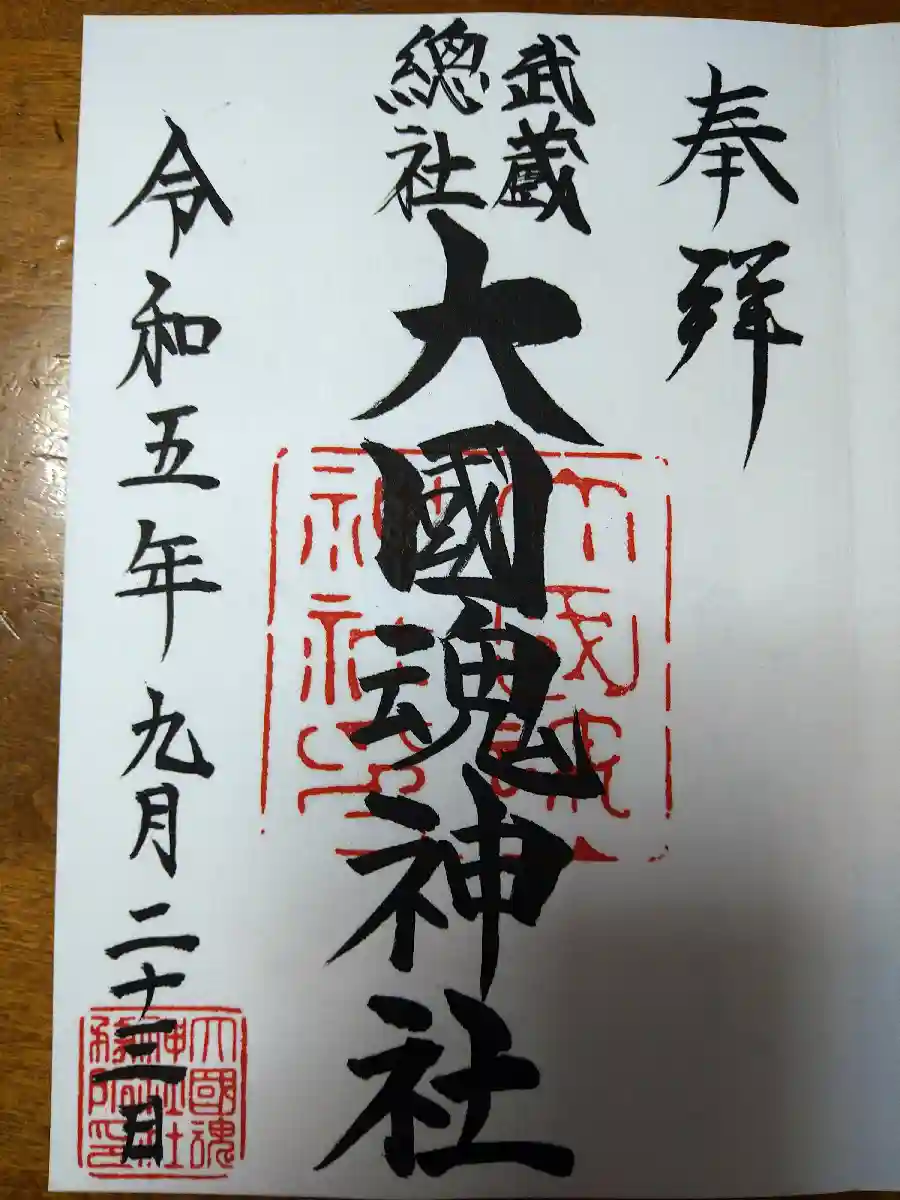 奉拝
武蔵
總社
大國魂神社
令和五年九月二十三日
大國魂
神社社
務所印